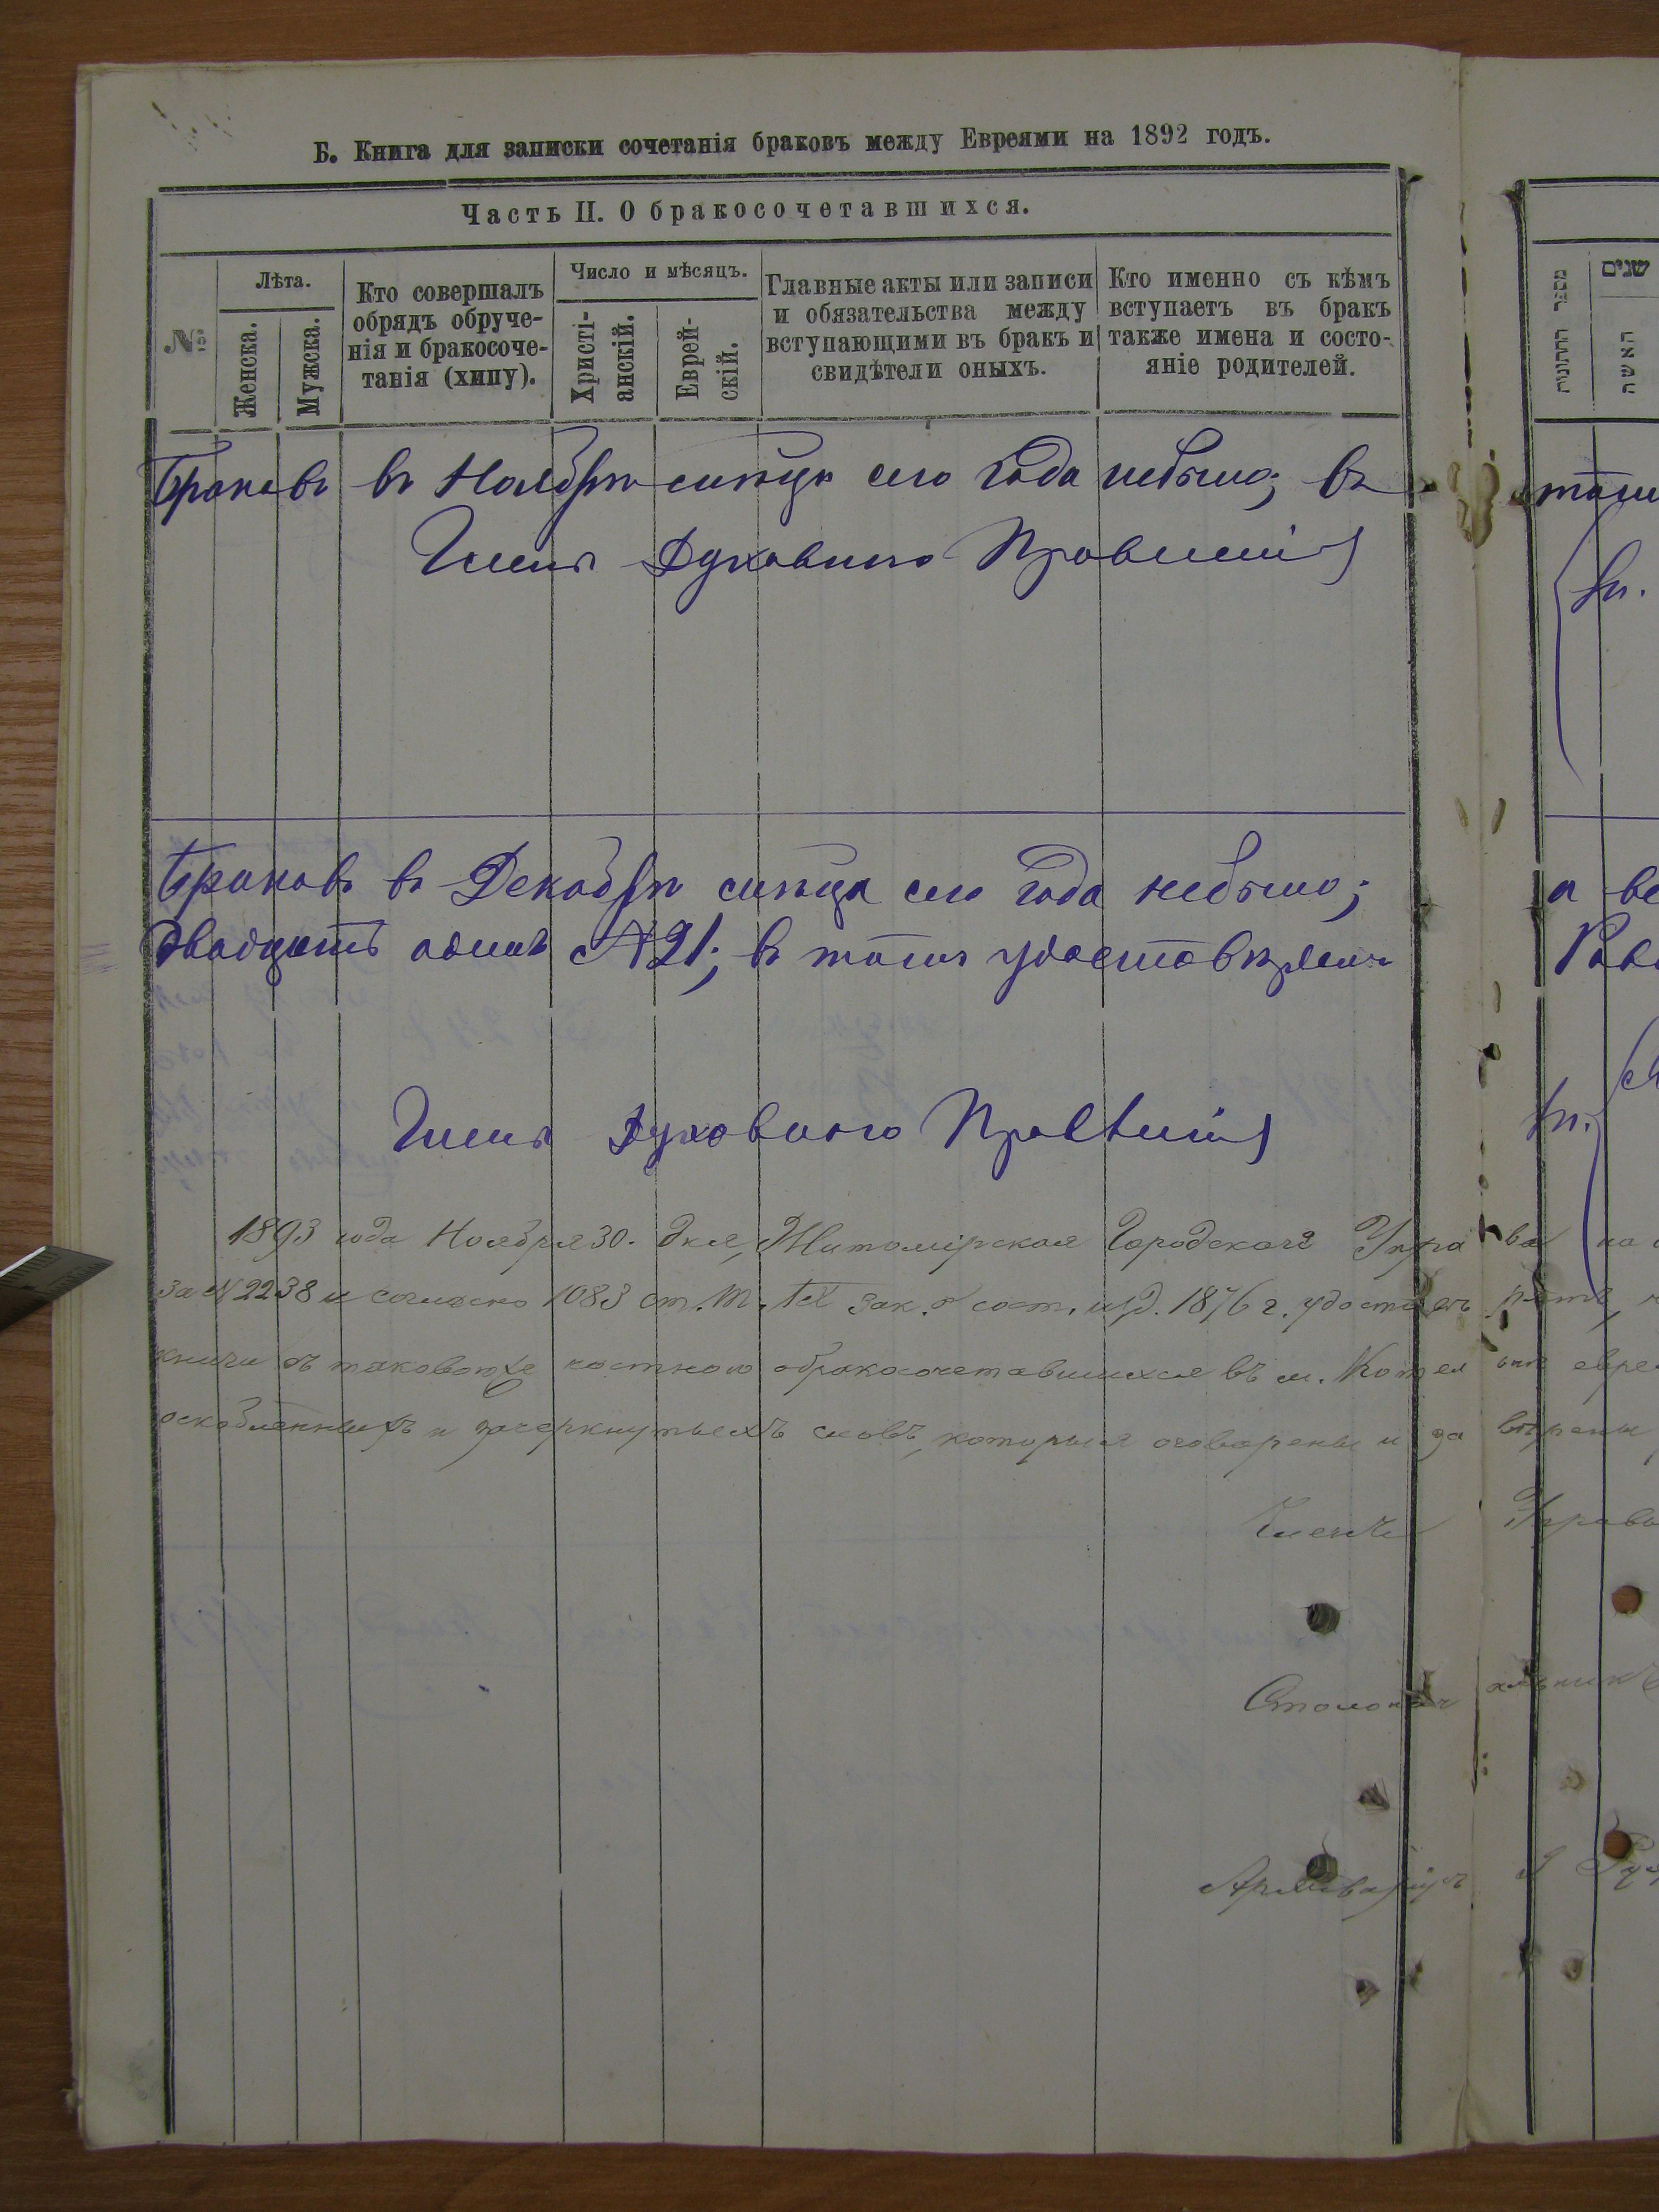 Б. Книга для записки сочетанія браковъ между Евреями на 1892 годъ.
Часть II. О бракосочетавшихся.
№
Лѣта.
Женска.
Мужска.
Кто совершалъ
обрядъ обруче-
нія и бракосоче-
танія (хипу).
Число и мѣсяцъ.
Христі-
анскій.
Еврей-
скій.
Главные акты или записи
и обязательства между
вступающими въ бракъ и
свидѣтели оныхъ.
Кто именно съ кѣмъ
вступаетъ въ бракъ
также имена и состо-
яніе родителей.
מספר החתונות
שנים
האשה
Браковъ въ Ноябрѣ сего года небыло; въ томъ
Членъ Духовнаго Правленія
Браковъ въ Декабрѣ сего года небыло; а
двадцать одинъ №21; въ томъ удостовѣряемъ
Членъ Духовнаго Правленія
1893 года Ноября 30. дня, Житомірская Городская Управа на
за №2238 и согласно 1083 ст. Т. IX зак. о сост. изд. 1876 г. удостовѣ
книги съ таковою же частною о бракосочетавшихся въ м. Котел
оскобленныхъ и зачеркнутыхъ словъ, которыя оговорены и за
Членъ Управы
Столоначальникъ
Архиваріусъ